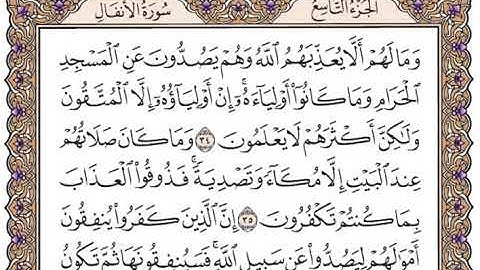 الجزء التاسع
سورة الأنفال
وَمَا لَهُمْ أَلَّا يُعَذِّبَهُمُ ٱللَّهُ وَهُمْ يَصُدُّونَ عَنِ ٱلْمَسْجِدِ
ٱلْحَرَامِ وَمَا كَانُوٓا۟ أَوْلِيَآءَهُۥٓ ۚ إِنْ أَوْلِيَآؤُهُۥٓ إِلَّا ٱلْمُتَّقُونَ
وَلَٰكِنَّ أَكْثَرَهُمْ لَا يَعْلَمُونَ ٣٤ وَمَا كَانَ صَلَاتُهُمْ
عِندَ ٱلْبَيْتِ إِلَّا مُكَآءً وَتَصْدِيَةً ۚ فَذُوقُوا۟ ٱلْعَذَابَ
بِمَا كُنتُمْ تَكْفُرُونَ ٣٥ إِنَّ ٱلَّذِينَ كَفَرُوا۟ يُنفِقُونَ
أَمْوَٰلَهُمْ لِيَصُدُّوا۟ عَن سَبِيلِ ٱللَّهِ ۚ فَسَيُنفِقُونَهَا ثُمَّ تَكُونُ